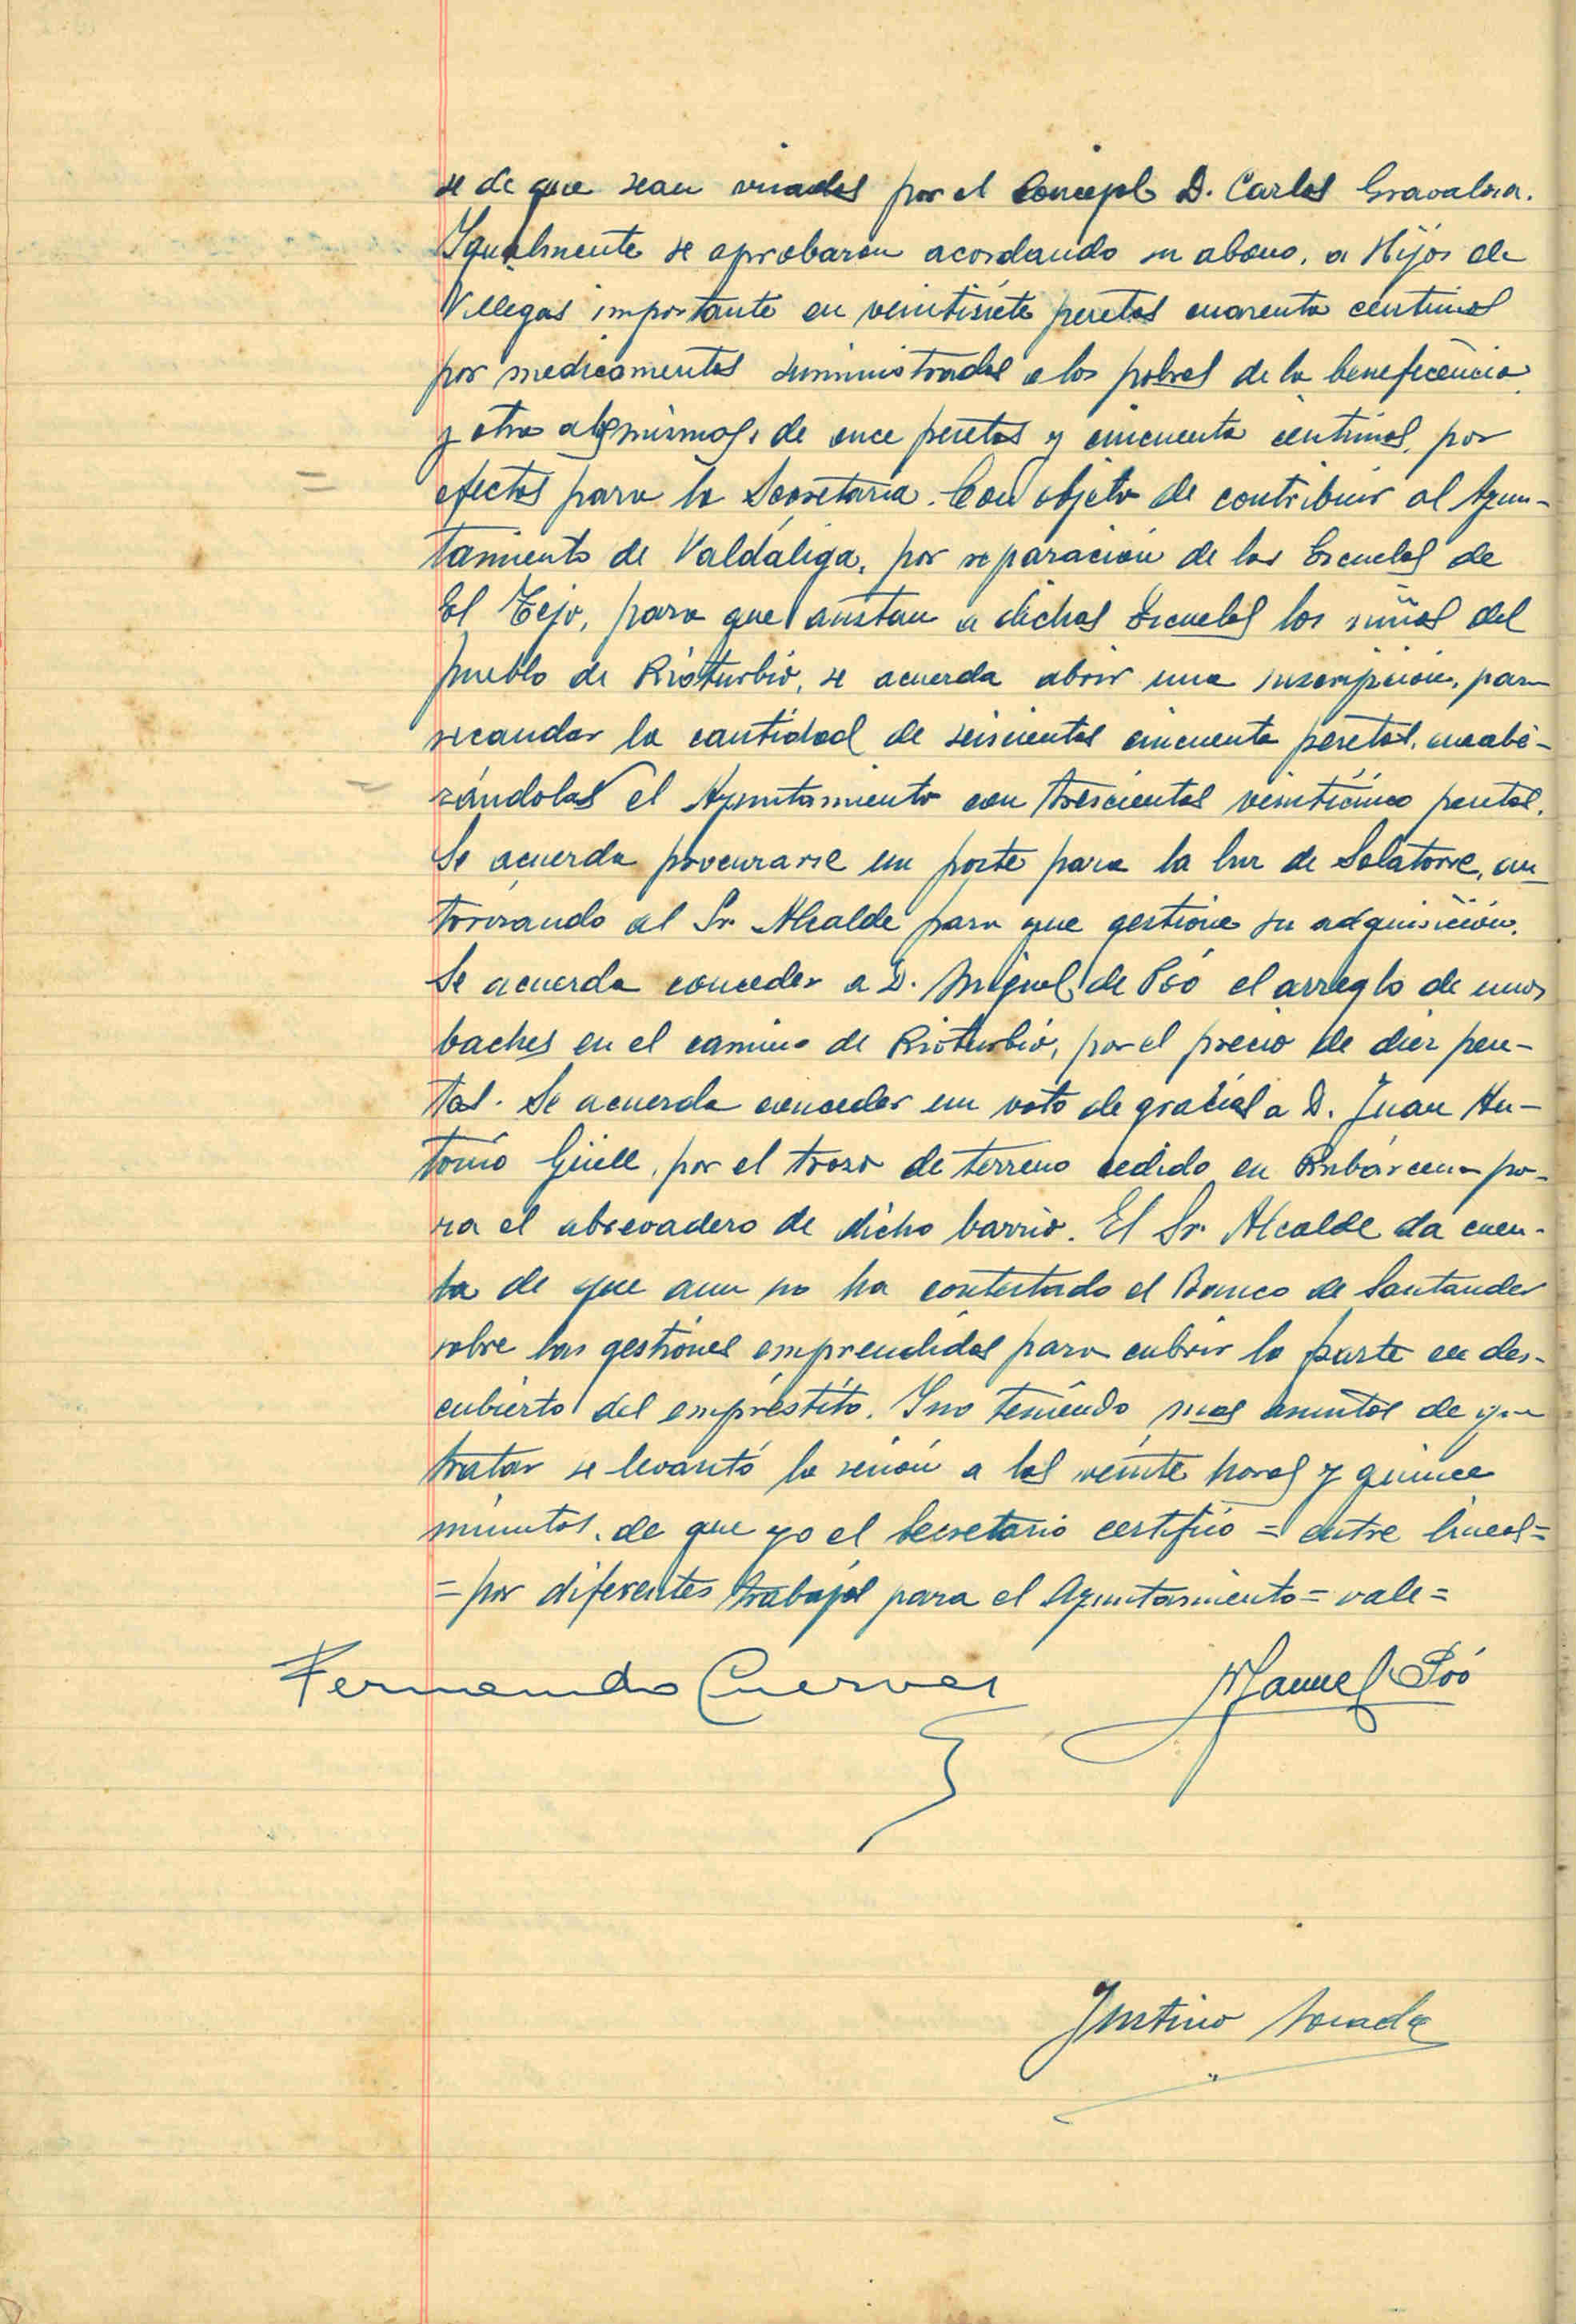 se de que sean visadas por el Concejal D. Carlos Gravalosa.
Igualmente se aprobaron acordando su abono, a Hijos de
Villegas importante en veintisiete pesetas cuarenta centimos
por medicamentos suministrados a los pobres de la beneficencia
y otra a los mismos, de once pesetas y cincuenta centimos, por
efectos para la Secretaría. Con objeto de contribuir al Ayun-
tamiento de Valdáliga, por reparación de las Escuelas de
El Tejo, para que asistan a dichas Escuelas los niños del
pueblo de Rioturbio, se acuerda abrir una suscripción, para
recaudar la cantidad de seiscientas cincuenta pesetas, encabe-
zándolas el Ayuntamiento con trescientas veinticinco pesetas.
Se acuerda procurarse un poste para la luz de Solatorre, au-
torizando al Sr. Alcalde para que gestione su adquisición.
Se acuerda conceder a D. Miguel de Póo el arreglo de unos
baches en el camino de Rioturbio, por el precio de diez pese-
tas. Se acuerda conceder un voto de gracias a D. Juan An-
tonio Güell, por el trozo de terreno cedido en Rubárcena pa-
ra el abrevadero de dicho barrio. El Sr. Alcalde da cuen-
ta de que aun no ha contestado el Banco de Santander
sobre las gestiones emprendidas para cubrir la parte en des-
cubierto del empréstito. Y no teniendo mas asuntos de que
tratar se levantó la sesión a las veinte horas y quince
minutos, de que yo el Secretario certifico = entre lineas =
= por diferentes trabajos para el Ayuntamiento = vale =
Fernando Cuevas Manuel Póo
Justino